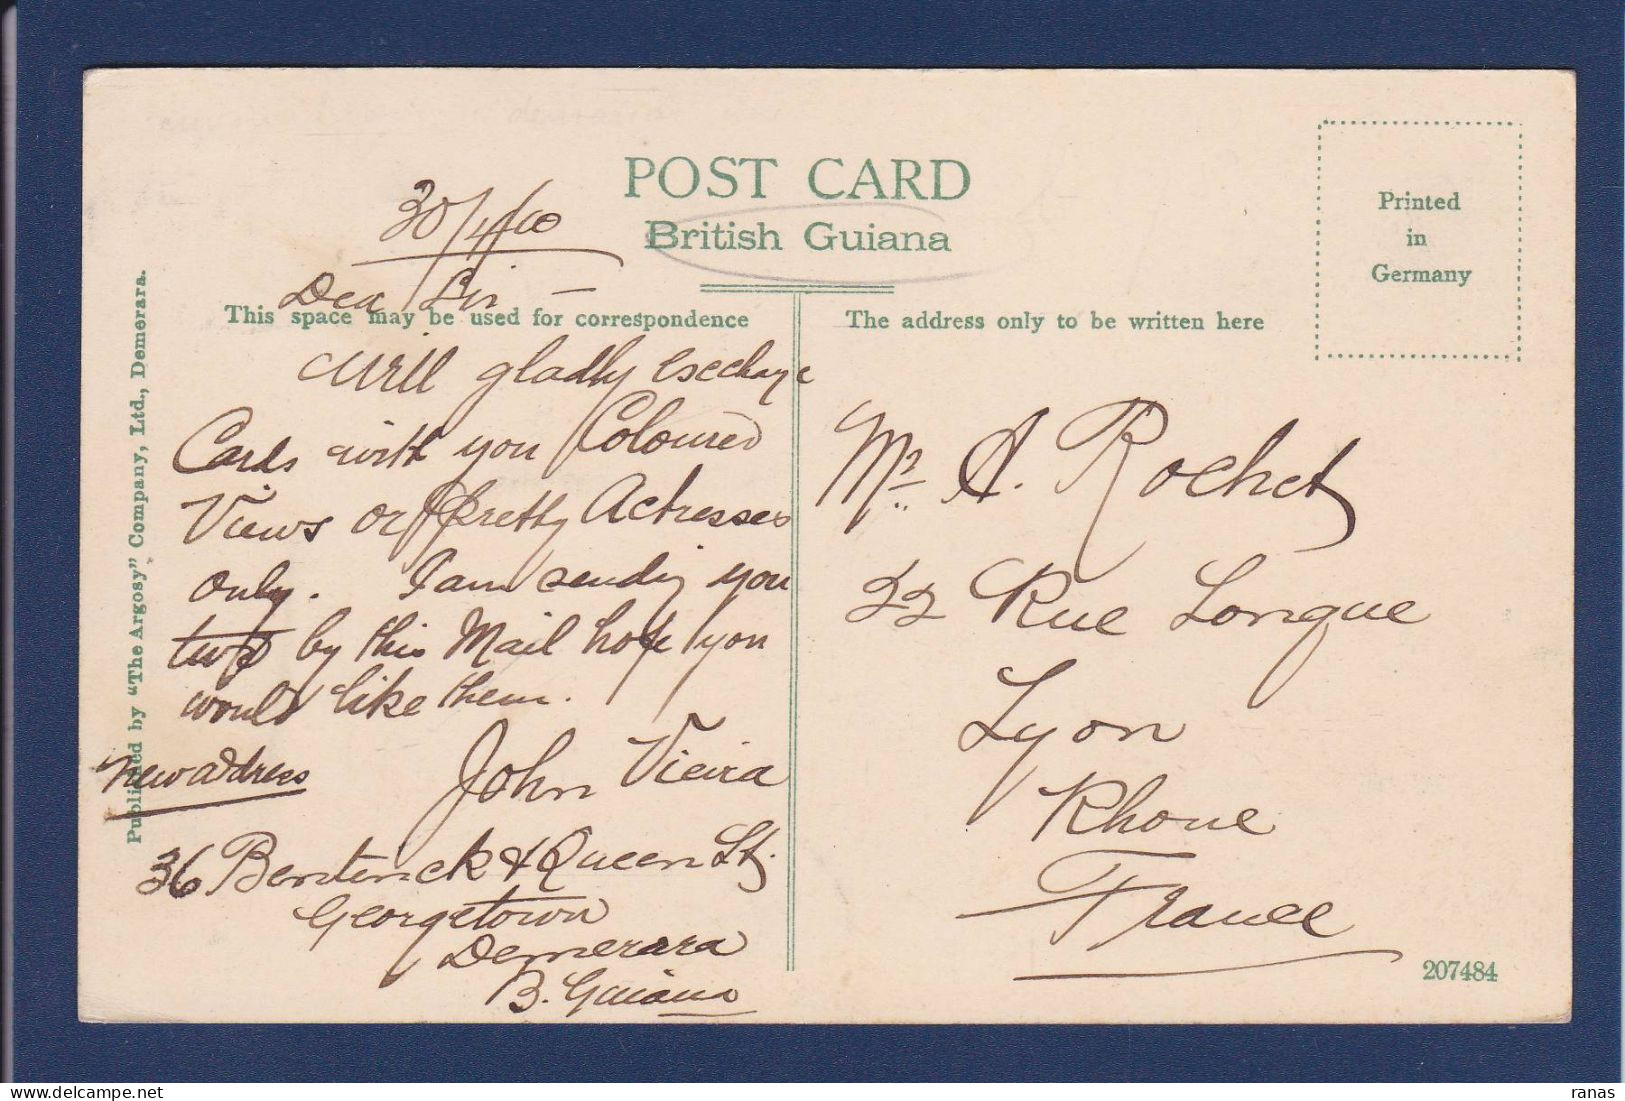 POST CARD
British Guiana
Printed
in
Germany
30/4/10
Dear Sir –
This space may be used for correspondence
Will gladly exchange
Cards with you Coloured
Views or pretty Actresses
only. I am sending you
two by this Mail hope you
would like them.
John Vieira
new address
36 Bentinck & Queen St.
Georgetown
Demerara
B. Guiana
The address only to be written here
Mr A. Rochet
22 Rue Longue
Lyon
Rhone
France
207484
Published by "The Argosy" Company, Ltd., Demerara.
ranas